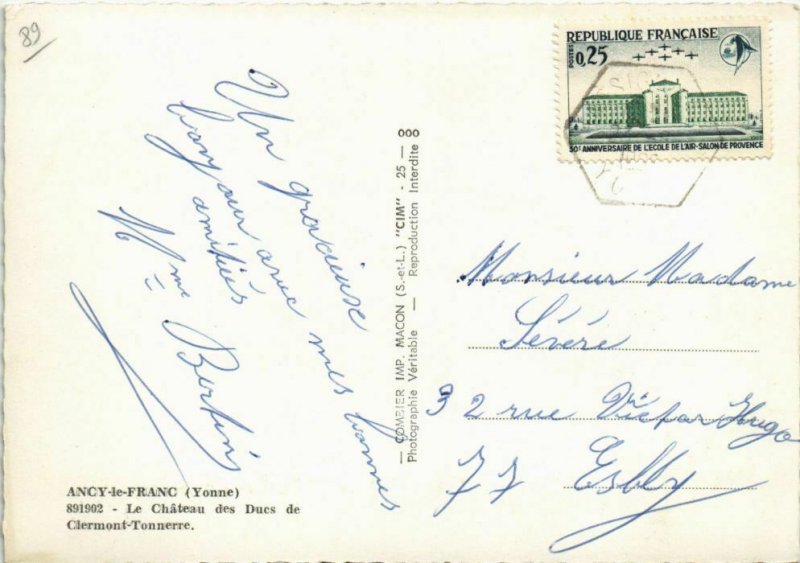 89
Un gracieuse
bonjour avec mes bonnes
amitiés
Mme Bertin
ANCY-le-FRANC (Yonne)
891902 - Le Château des Ducs de
Clermont-Tonnerre.
— COMBIER IMP. MACON (S.-et-L.) "CIM" - 25 — 000
Photographie Véritable — Reproduction Interdite
REPUBLIQUE FRANÇAISE
POSTES
0,25
30e ANNIVERSAIRE DE L'ECOLE DE L'AIR-SALON DE PROVENCE
Monsieur Madame
Sévére
32 rue Victor Hugo
77 Esbly